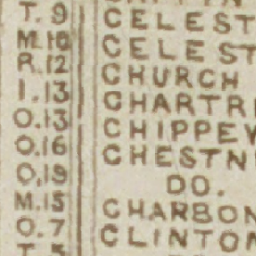 T. 9 CELEST
M. 10 CELEST
R. 12 CHURCH
I. 13 CHARTR
O. 13 CHIPPEW
O. 16 CHESTN
O. 19 DO.
M. 15 CHARBON
O. 7 CLINTON
T. 5